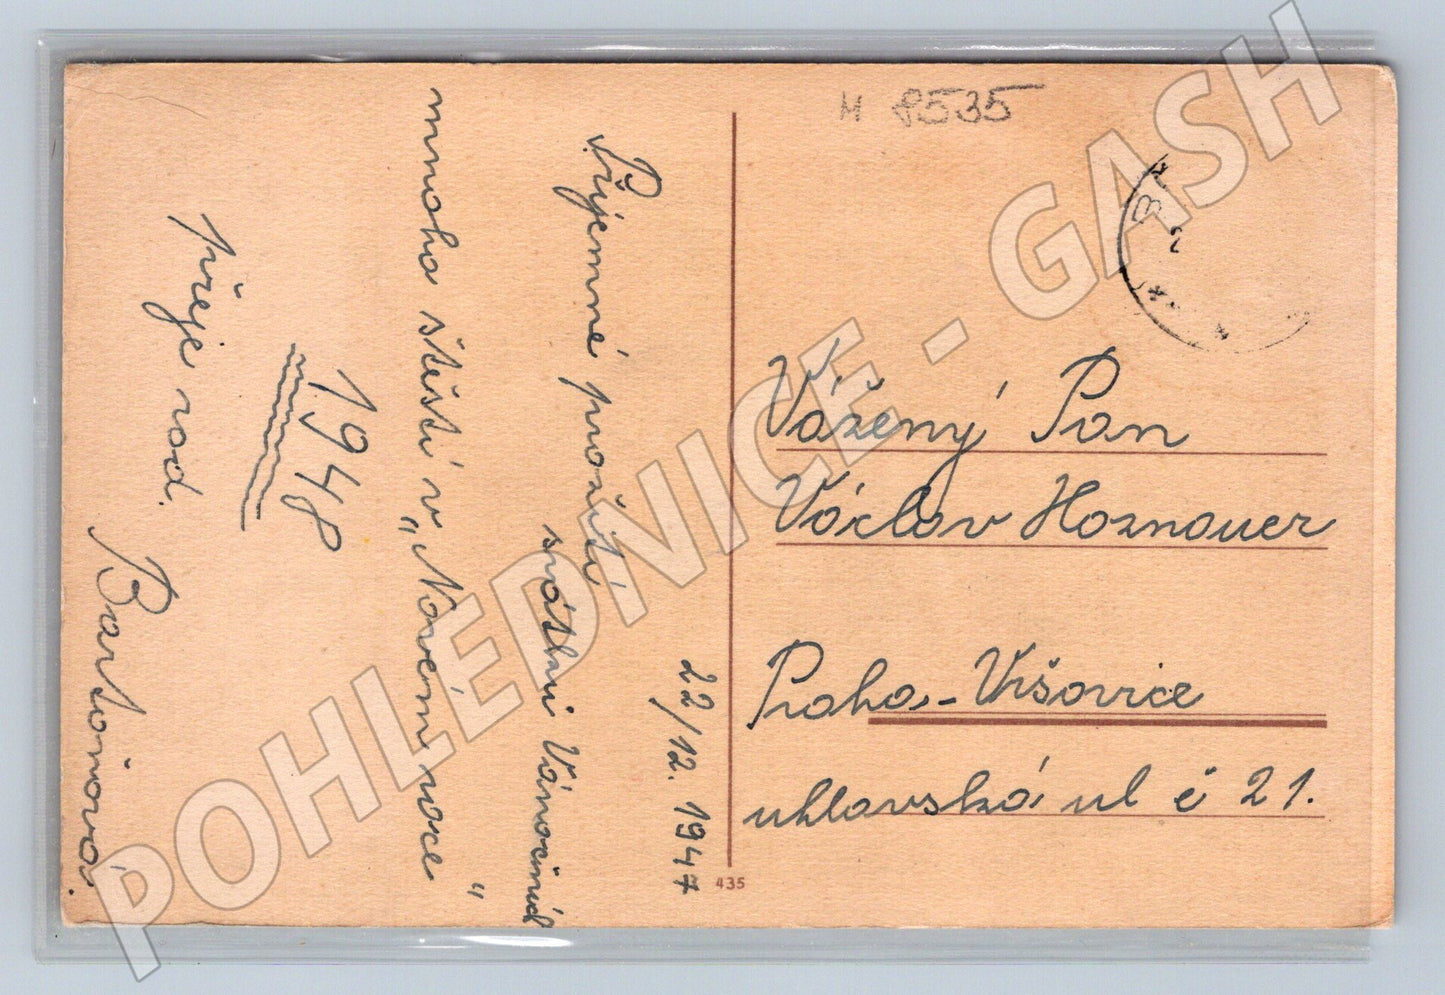 M 8535
22/12. 1947
Příjemné prožití
svátků Vánočních
mnoho štěstí v „Novém roce"
1948
přeje rod.
Bartoňová.
Vážený Pan
Václav Hoznauer
Praha - Vršovice
uhlavská ul č 21.
435
POHLEDNICE - GASH